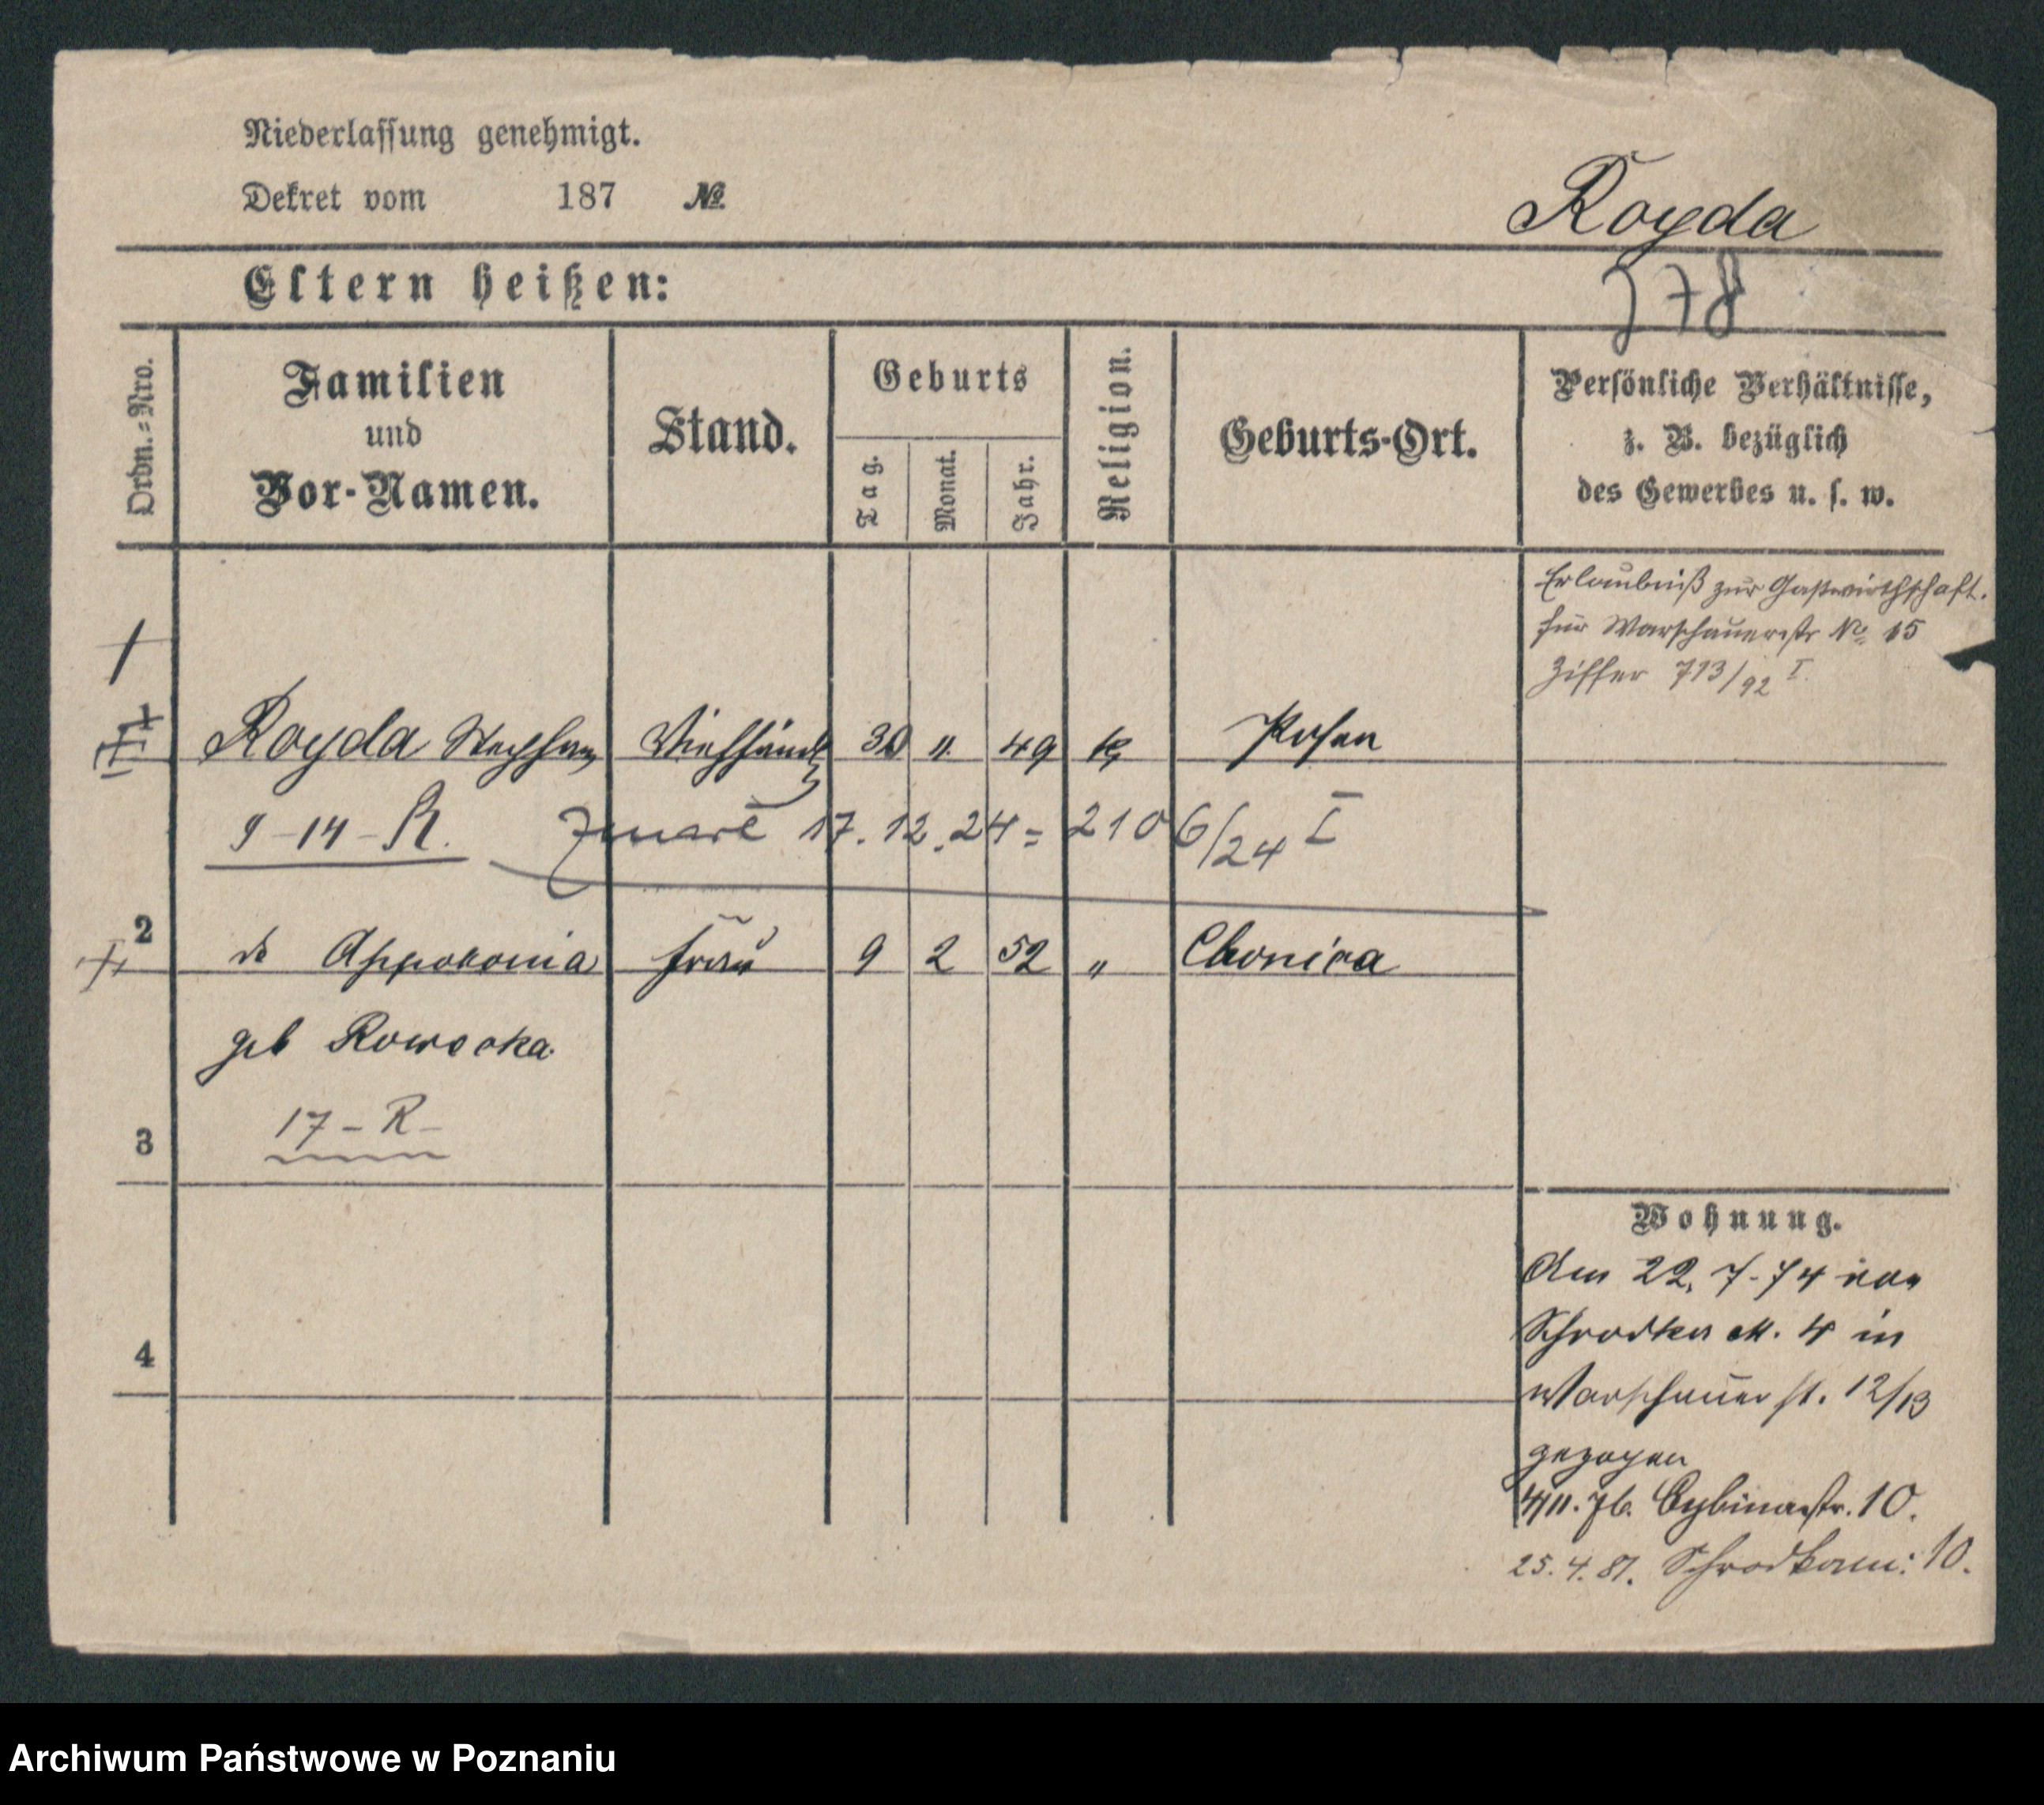 Niederlassung genehmigt.
Dekret vom 187 №
Royda
Eltern heißen:
578
Ordn.=Nro.
Familien
und
Vor-Namen.
Stand.
Geburts
Tag.
Monat.
Jahr.
Religion.
Geburts-Ort.
Persönliche Verhältnisse,
z. B. bezüglich
des Gewerbes u. s. w.
Erlaubniß zur Gastwirthschaft.
für Warschauerstr № 15
Ziffer 713/92 I.
1
Royda Stephan Viehhändler 30 11. 49 k Posen
9-14-R. zmarł 17.12.24 = 2106/24 I
2
do Appolonia Frau 9 2 52 " 
geb
17-R-
3
4
Wohnung.
Am 22. 7. 74 von
Schrodka M. 4 in
Warschauer st. 12/13
gezogen
4/11. 76. Cybinastr. 10.
25. 4. 81. Schrodkam: 10.
Archiwum Państwowe w Poznaniu